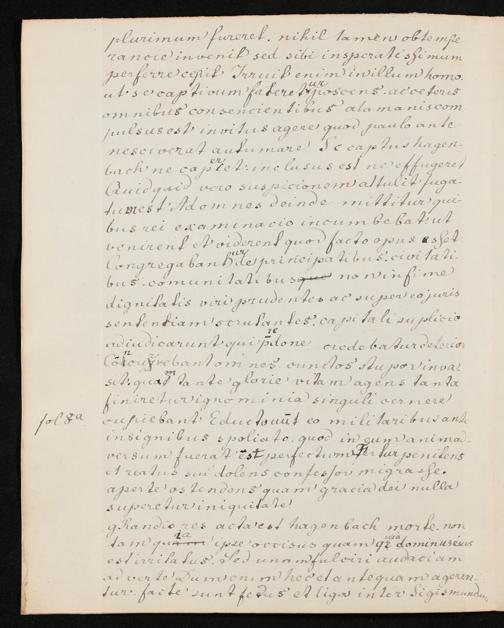 plurimum fureret. nihil tamen obtempe
rancie invenit sed sibi insperatissimum
perferre cepit. Irruit enim in illum homo.
ut se captivum fateretur poscens. ac ceteris
omnibus consencientibus alamanis com
pulsus est invitus agere quod paulo ante
nescierat autumare. Sc captus hagen
bach ne caperet. inclusus est ne effugeret
Quidquid vero suspicionem attulit fuga
tum est Ad omnes deinde mittitur qui
bus rei examinacio incumbebat ut
venirent et viderent quod facto opus esset
Congregabantur de principatibus. civitati
bus. comunitatibus non infime
dignitatis viri prudentes ac super eo juris
sentendiam scrutantes. capitali suplicio
adiudicarunt. qui credebatur deterior
omnes. cunctos stupor inva
sit. quam tante glorie vitam agens tanta
finiretur ignominia singuli cernere
cupiebant. eo militaribus ante
fol 8a
insignibus spoliato. quod in eum animad
versum fuerat est perfectum fertur penitens
et reatus sui dolens confessor migrasse.
aperte ostendens quam gracia dei nulla
superetur iniquitate
gRandis res acta est hagenbach morte. non
tam quia ipse occisus quam quia dominus eius
est irritatus. Sed unam fulciri audaciam
adverte Dum enim hec et antequam ageren-
tur. facte sunt fedus et liga inter Sigismundum